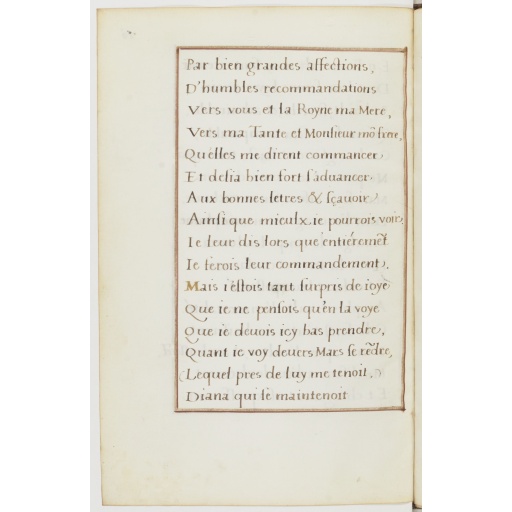 Par bien grandes affections,
D'humbles recommandations
Vers vous et la Royne ma Mere,
Vers ma Tante et Monsieur mõ frere,
Qu'elles me dirent commancer,
Et desia bien fort s'aduancer,
Aux bonnes letres & sçauoir,
Ainsi que mieulx ie pourrois voir.
Ie leur dis lors que entiéremẽt
Ie ferois leur commandement,
Mais i'estois tant surpris de ioye
Que ie ne pensois qu'en la voye
Que ie deuois icy bas prendre,
Quant ie voy deuers Mars se rẽdre,
(Lequel pres de luy me tenoit,)
Diana qui se maintenoit